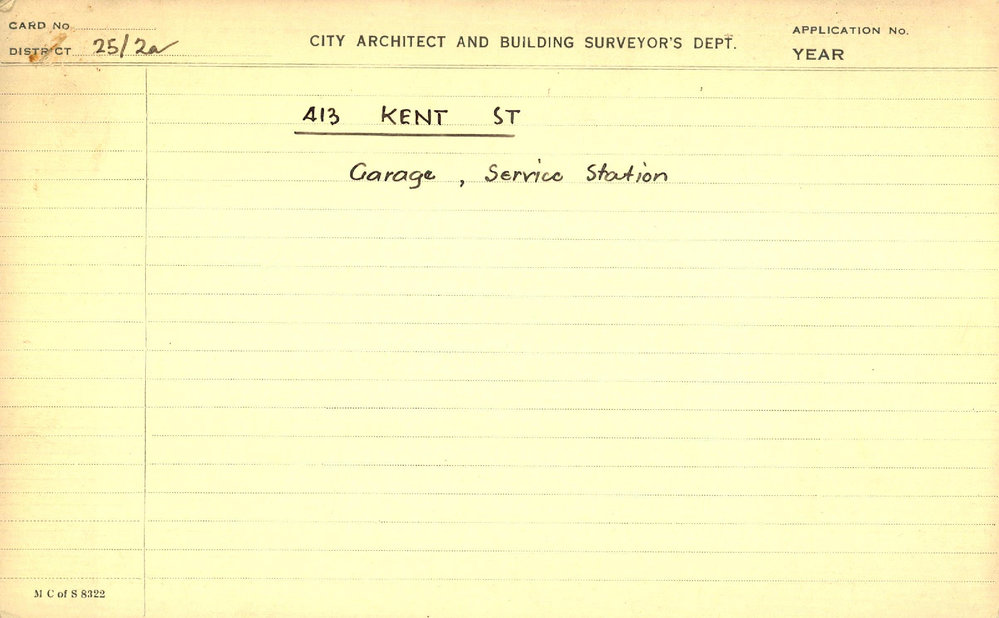 CARD No
DISTRICT 25/2a
CITY ARCHITECT AND BUILDING SURVEYOR'S DEPT.
APPLICATION No.
YEAR
413 KENT ST
Garage, Service Station
M C of S 8322